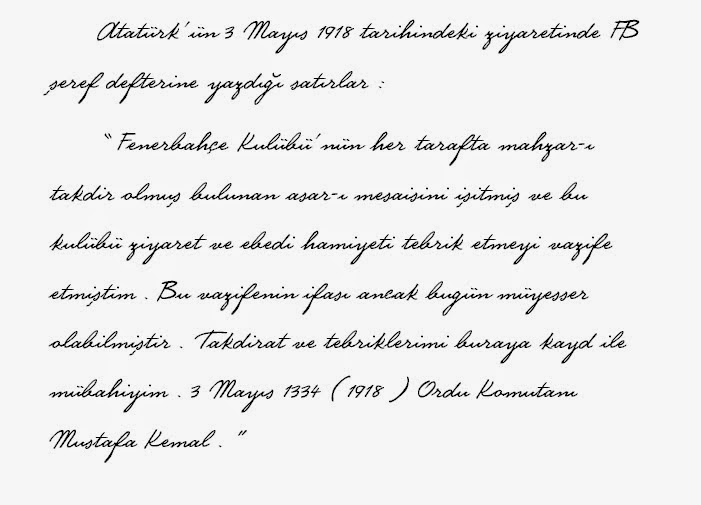 Atatürk'ün 3 Mayıs 1918 tarihindeki ziyaretinde FB
şeref defterine yazdığı satırlar :
“ Fenerbahçe Kulübü'nün her tarafta mahzar-ı
takdir olmuş bulunan asar-ı mesaisini işitmiş ve bu
kulübü ziyaret ve ebedi hamiyeti tebrik etmeyi vazife
etmiştim . Bu vazifenin ifası ancak bugün müyesser
olabilmiştir . Takdirat ve tebriklerimi buraya kayd ile
mübahiyim . 3 Mayıs 1334 ( 1918 ) Ordu Komutanı
Mustafa Kemal . ”